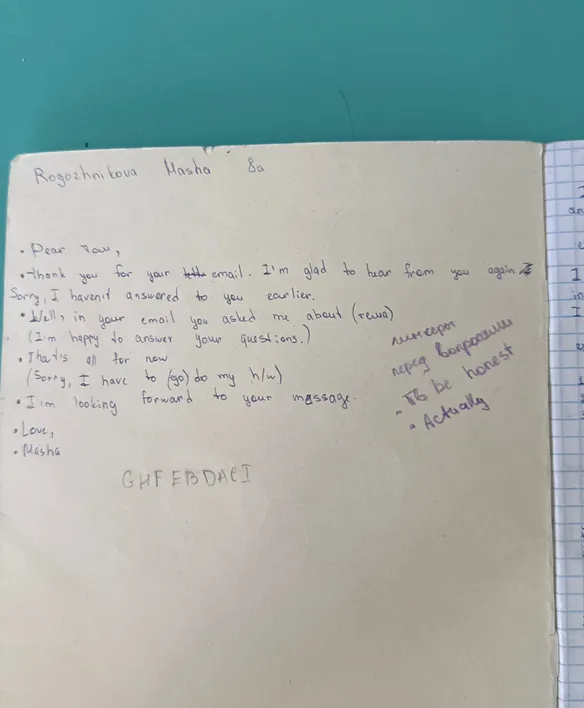 Rogozhnikova Masha 8a
• Dear Tom,
• Thank you for your email. I'm glad to hear from you again
Sorry, I haven't answered to you earlier.
• Well, in your email you asked me about (тема)
(I'm happy to answer your questions.)
• That's all for now
(Sorry, I have to (go) do my h/w)
• I'm looking forward to your message.
• Love,
• Masha
линкеры
перед вопросами
• To be honest
• Actually
GHFEBDACI